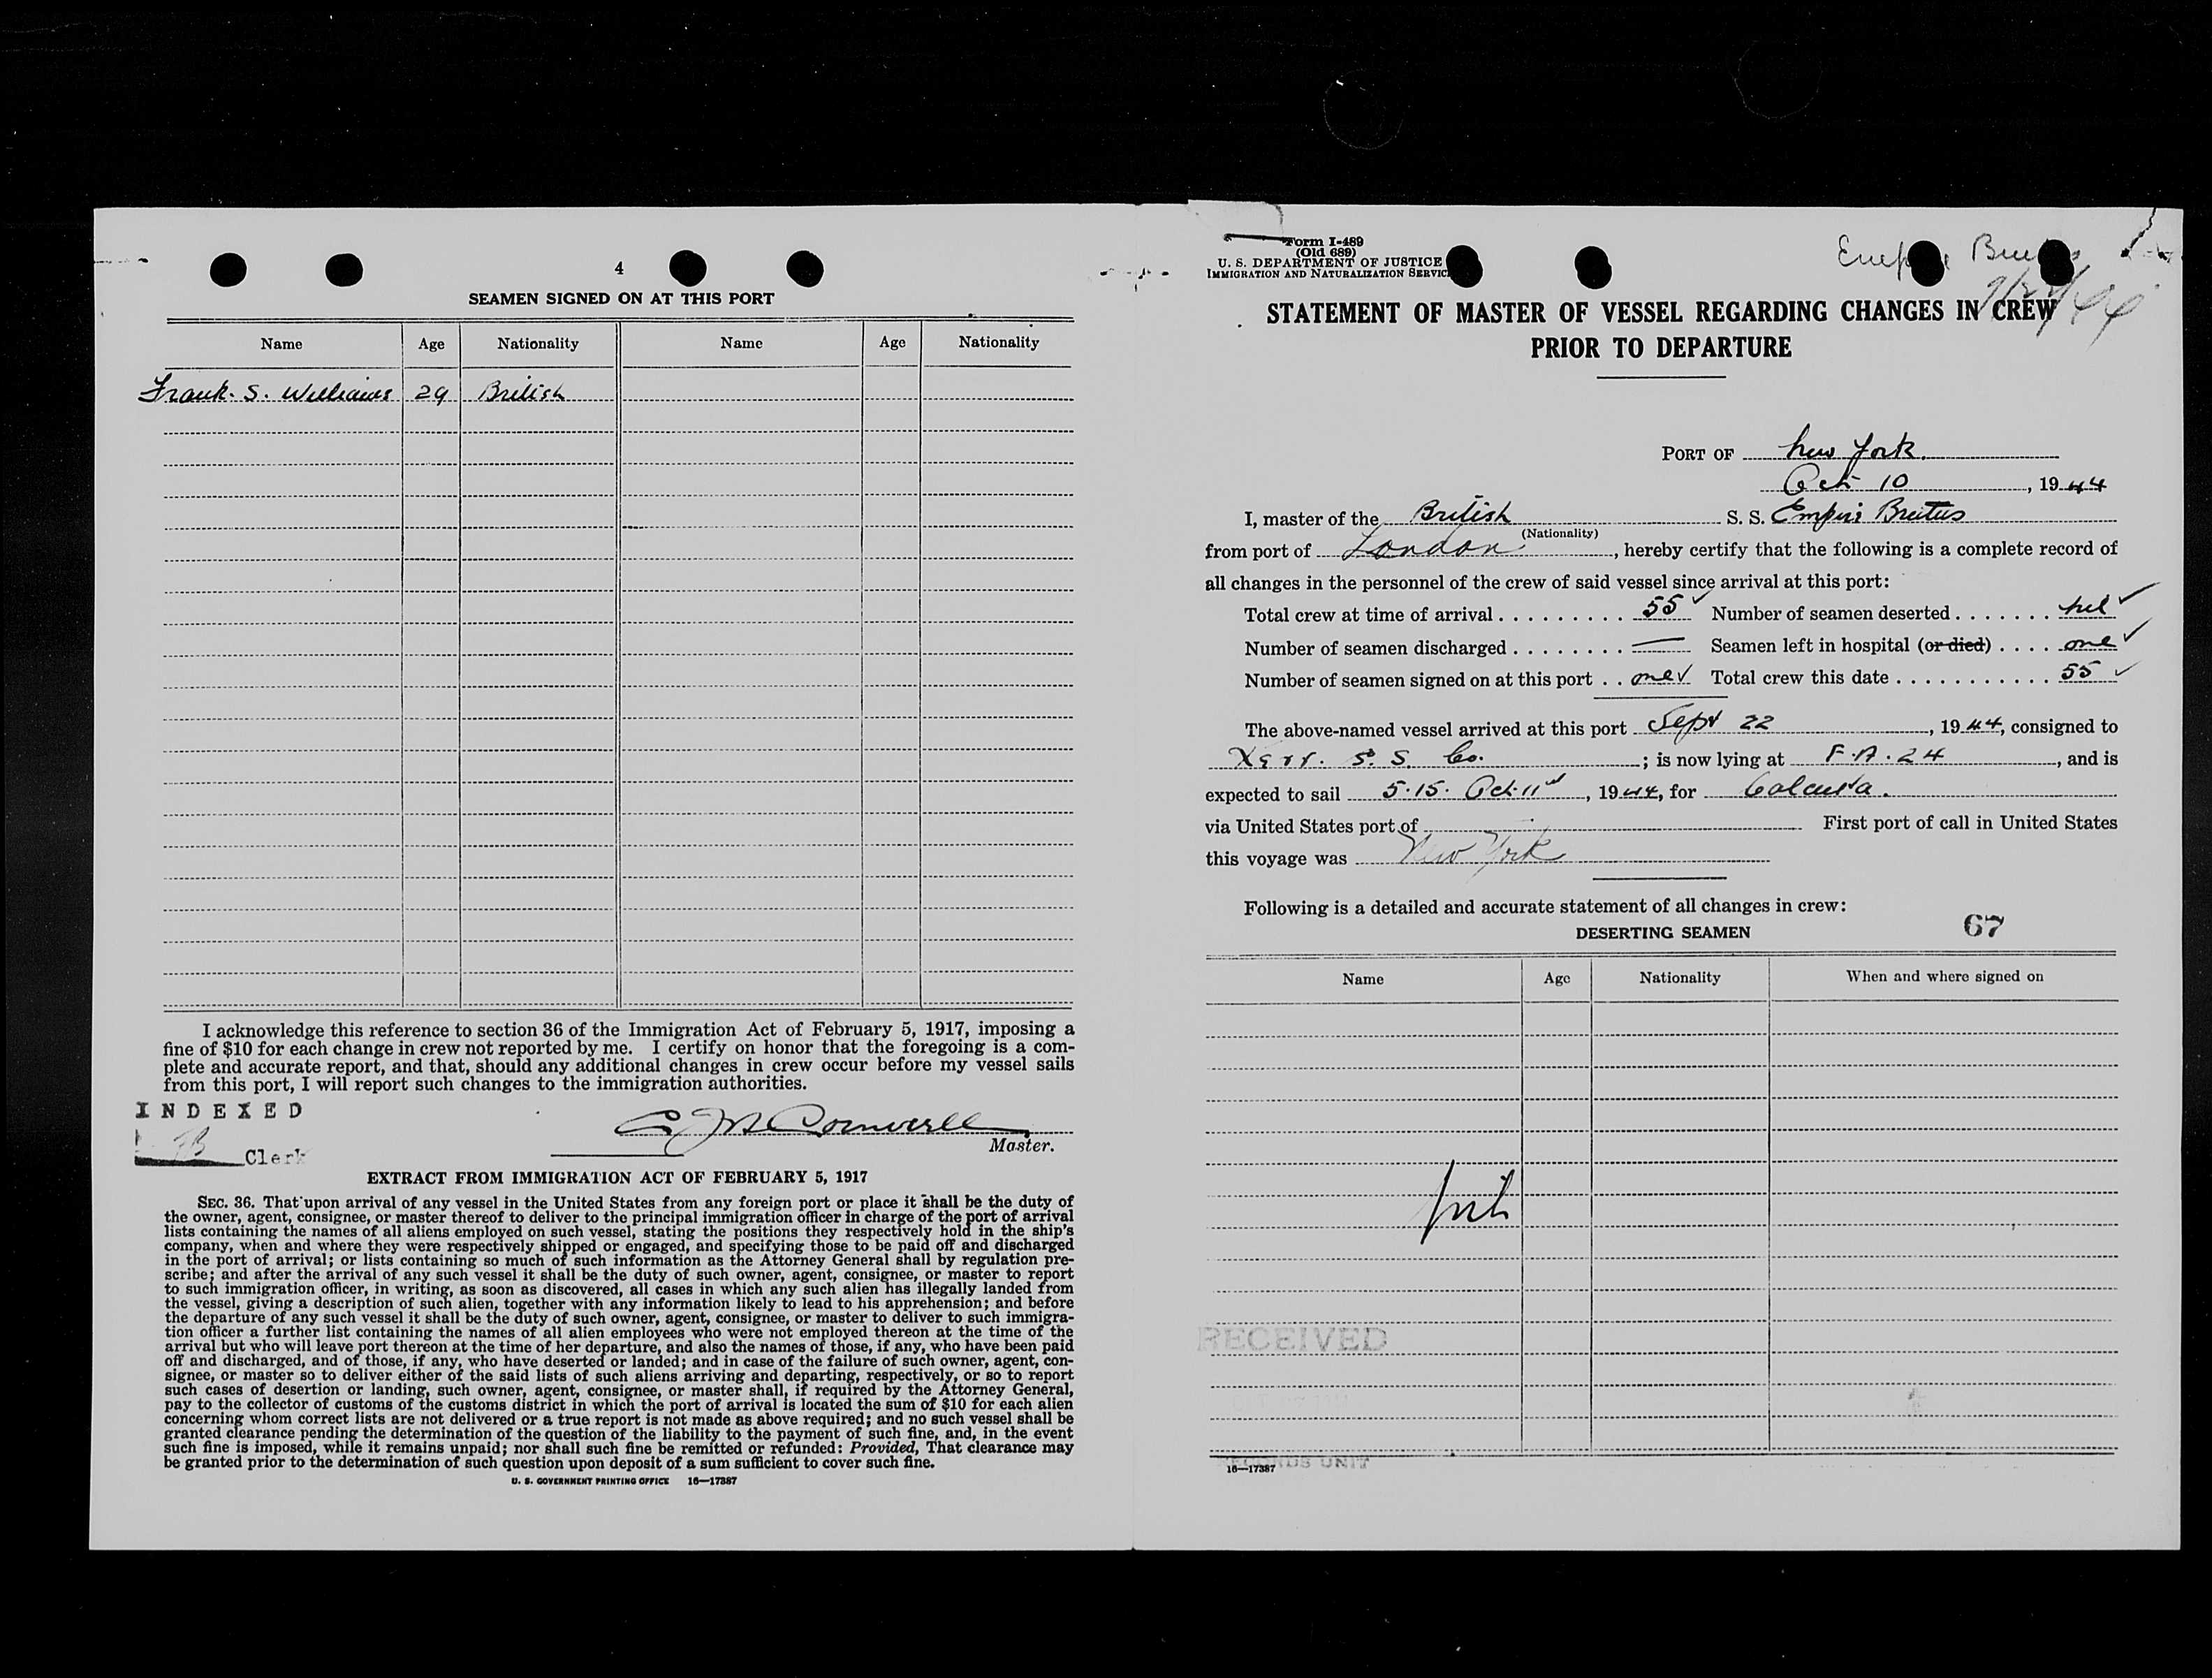 4
SEAMEN SIGNED ON AT THIS PORT
Name Age Nationality Name Age Nationality
Frank. S. Williams 29 British
I acknowledge this reference to section 36 of the Immigration Act of February 5, 1917, imposing a
fine of $10 for each change in crew not reported by me. I certify on honor that the foregoing is a com-
plete and accurate report, and that, should any additional changes in crew occur before my vessel sails
from this port, I will report such changes to the immigration authorities.
INDEXED
Clerk
Cornwell
Master.
EXTRACT FROM IMMIGRATION ACT OF FEBRUARY 5, 1917
SEC. 36. That upon arrival of any vessel in the United States from any foreign port or place it shall be the duty of
the owner, agent, consignee, or master thereof to deliver to the principal immigration officer in charge of the port of arrival
lists containing the names of all aliens employed on such vessel, stating the positions they respectively hold in the ship's
company, when and where they were respectively shipped or engaged, and specifying those to be paid off and discharged
in the port of arrival; or lists containing so much of such information as the Attorney General shall by regulation pre-
scribe; and after the arrival of any such vessel it shall be the duty of such owner, agent, consignee, or master to report
to such immigration officer, in writing, as soon as discovered, all cases in which any such alien has illegally landed from
the vessel, giving a description of such alien, together with any information likely to lead to his apprehension; and before
the departure of any such vessel it shall be the duty of such owner, agent, consignee, or master to deliver to such immigra-
tion officer a further list containing the names of all alien employees who were not employed thereon at the time of the
arrival but who will leave port thereon at the time of her departure, and also the names of those, if any, who have been paid
off and discharged, and of those, if any, who have deserted or landed; and in case of the failure of such owner, agent, con-
signee, or master so to deliver either of the said lists of such aliens arriving and departing, respectively, or so to report
such cases of desertion or landing, such owner, agent, consignee, or master shall, if required by the Attorney General,
pay to the collector of customs of the customs district in which the port of arrival is located the sum of $10 for each alien
concerning whom correct lists are not delivered or a true report is not made as above required; and no such vessel shall be
granted clearance pending the determination of the question of the liability to the payment of such fine, and, in the event
such fine is imposed, while it remains unpaid; nor shall such fine be remitted or refunded: Provided, That clearance may
be granted prior to the determination of such question upon deposit of a sum sufficient to cover such fine.
U. S. GOVERNMENT PRINTING OFFICE 16—17387
Form I-489
(Old 689)
U. S. DEPARTMENT OF JUSTICE
IMMIGRATION AND NATURALIZATION SERVICE
STATEMENT OF MASTER OF VESSEL REGARDING CHANGES IN CREW
PRIOR TO DEPARTURE
PORT OF New York.
Oct 10, 1944
I, master of the British S. S. Empire Brutus
(Nationality)
from port of London, hereby certify that the following is a complete record of
all changes in the personnel of the crew of said vessel since arrival at this port:
Total crew at time of arrival . . . . . . . . . . 55 ✓ Number of seamen deserted . . . . . . . nil ✓
Number of seamen discharged . . . . . . . . — Seamen left in hospital (or died) . . . . one ✓
Number of seamen signed on at this port . . one ✓ Total crew this date . . . . . . . . . . . . 55 ✓
The above-named vessel arrived at this port Sept 22, 1944, consigned to
Kerr. S. S. Co.; is now lying at F.A. 24, and is
expected to sail 5.15. Oct. 11, 1944, for Calcutta.
via United States port of First port of call in United States
this voyage was New York
Following is a detailed and accurate statement of all changes in crew:
DESERTING SEAMEN 67
Name Age Nationality When and where signed on
nil
RECEIVED
RECORDS UNIT
16—17387